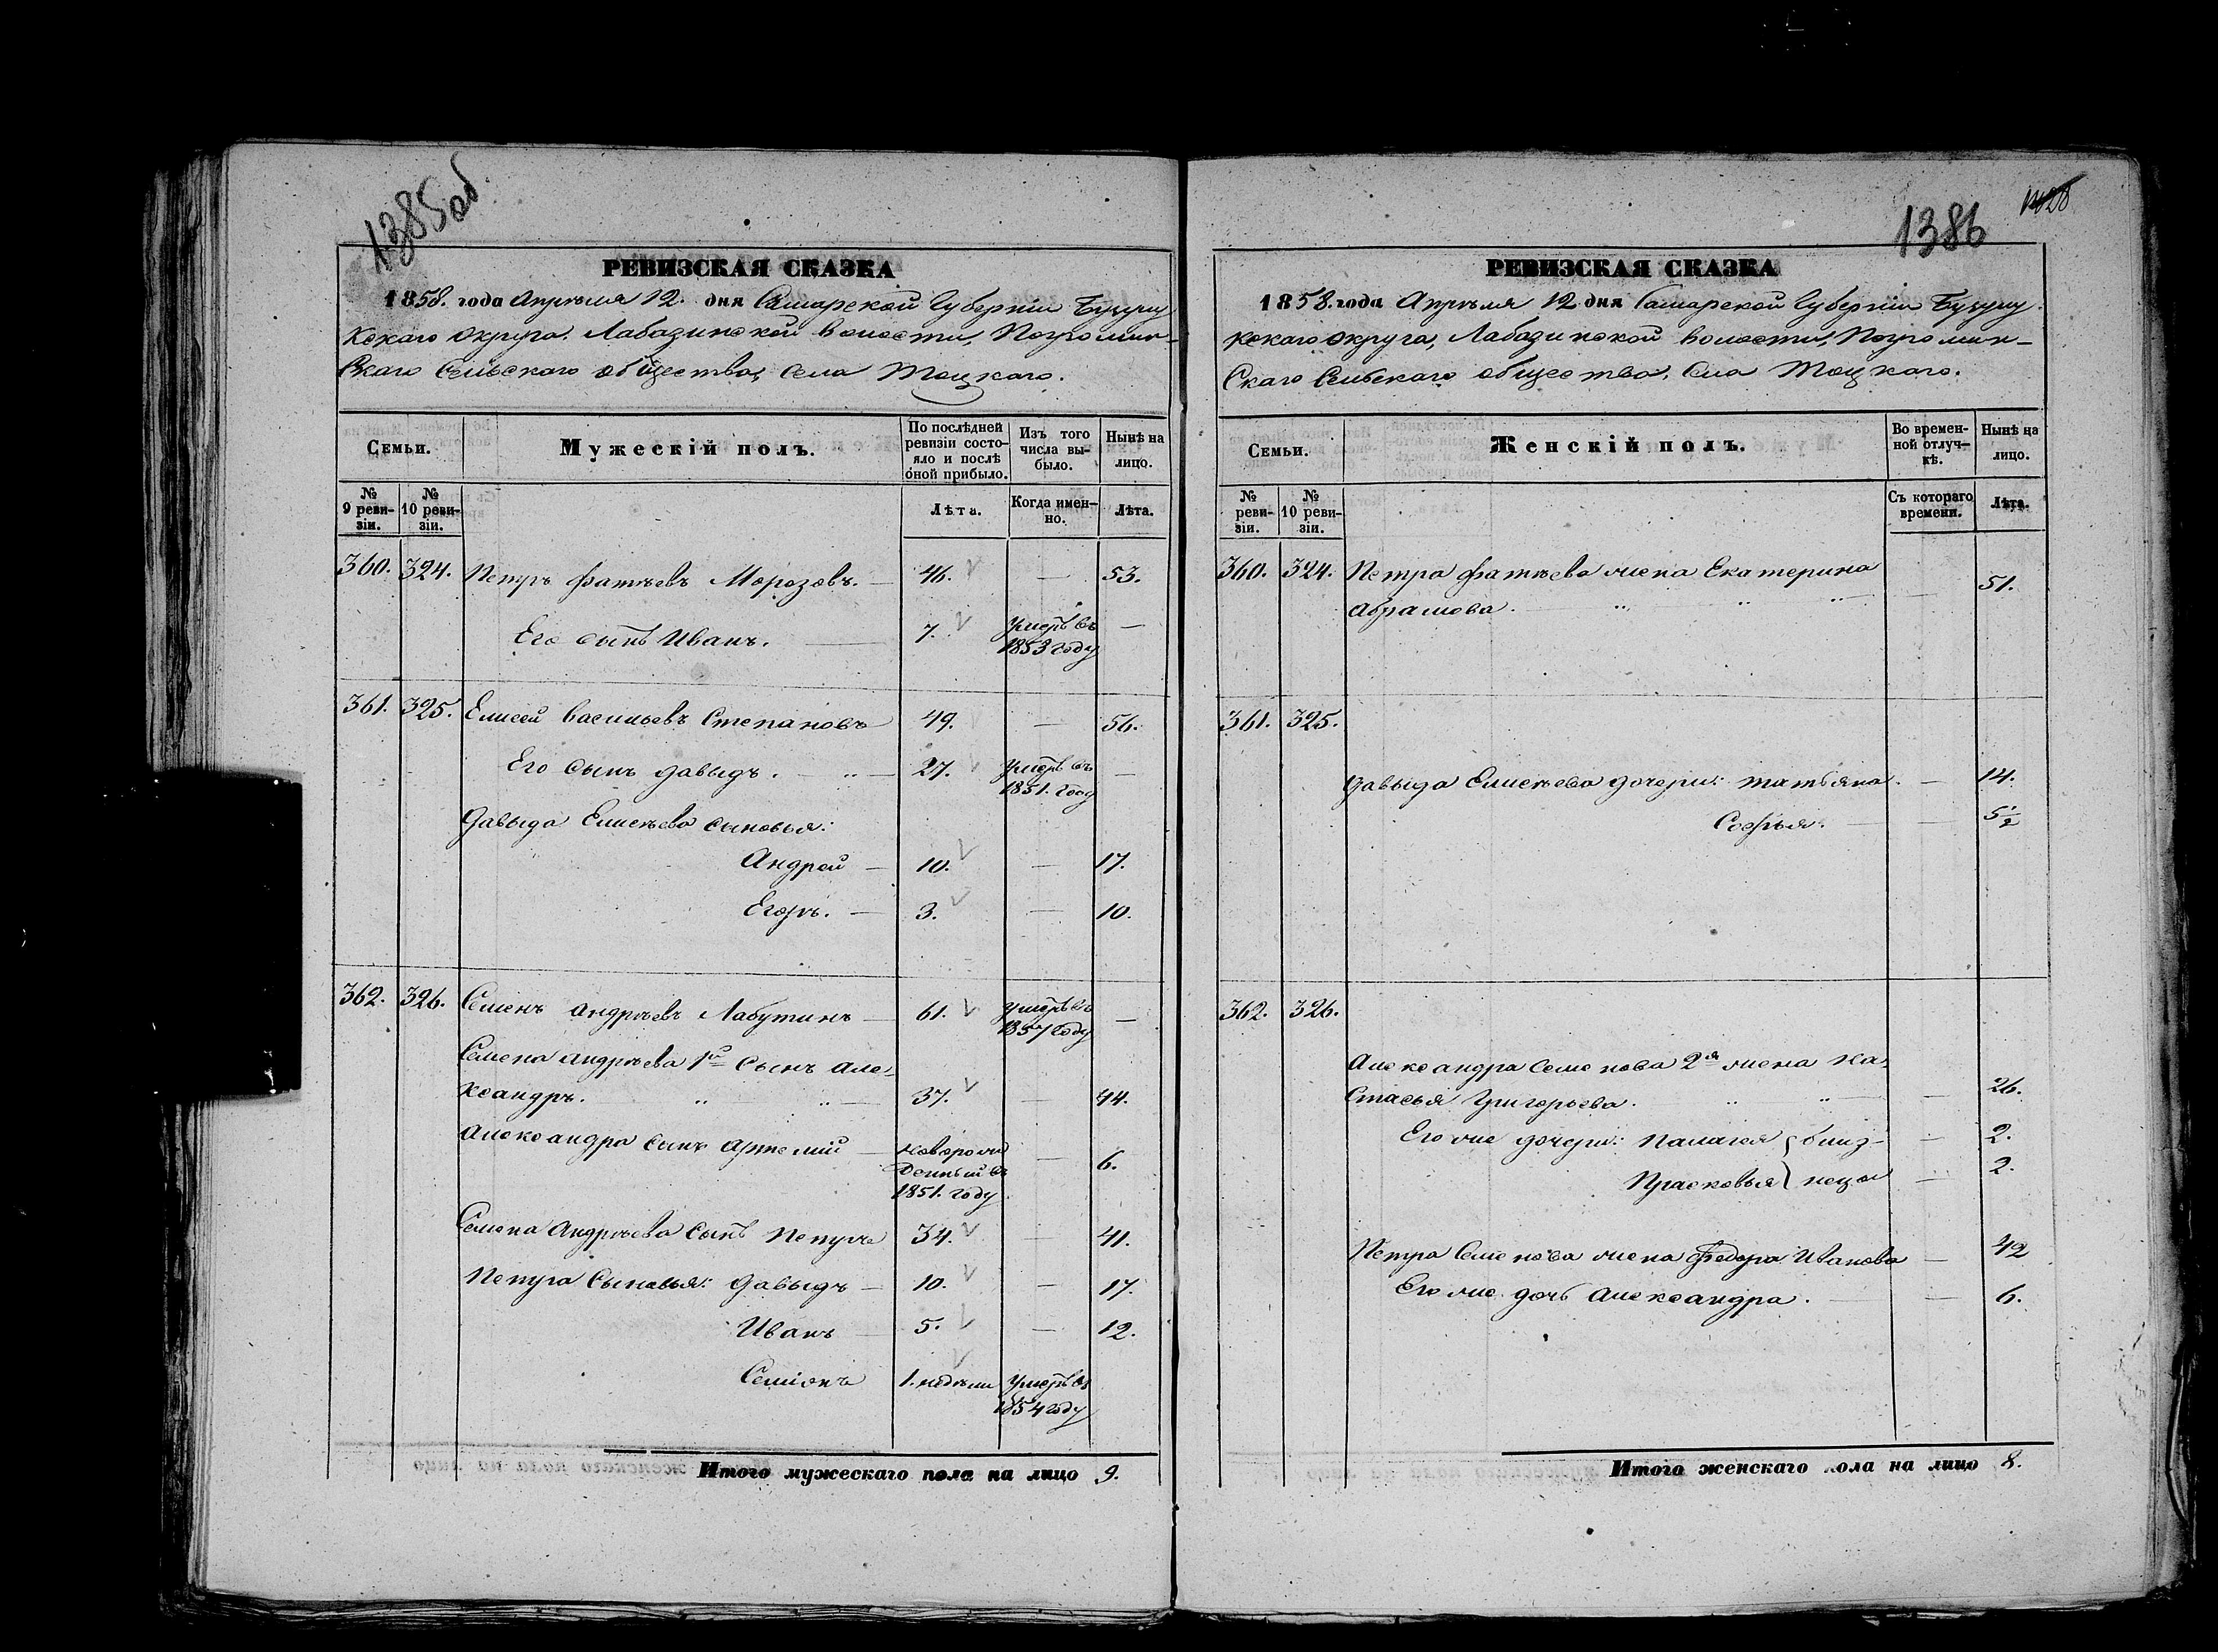 1385об
РЕВИЗСКАЯ СКАЗКА
1858. года Апрѣля 12. дня Самарской Губерніи Бузулу
кскаго округа, Лабазинской волости, Погромин-
скаго Сельскаго общества, села Тоцкаго.
Семьи.
Мужескій полъ.
По послѣдней ревизіи состо-
яло и послѣ оной прибыло.
Изъ того числа вы-
было.
Нынѣ на лицо.
№ 9 реви-
зіи.
№ 10 реви-
зіи.
Лѣта.
Когда имен-
но.
Лѣта.
360. 324. Петръ Фатѣевъ Морозовъ. — 46. — 53.
Его сынъ Иванъ. — 7. Умеръ въ —
1853 году
361. 325. Елисей Васильевъ Степановъ 49. — 56.
Его сынъ Давыдъ. — 27. Умеръ въ —
1851. году
Давыда Елисѣева сыновья:
Андрей — 10. — 17.
Егоръ. — 3. — 10.
362. 326. Семенъ Андрѣевъ Лабутинъ — 61. Умеръ въ —
1857 году
Семена Андрѣева 1й сынъ Але-
ксандръ. — 37. — 44.
Александра сынъ Артемій — новорож
денный въ — 6.
1851. году
Семена Андрѣева сынъ 34. — 41.
сыновья: Давыдъ — 10. — 17.
Иванъ — 5. — 12.
Семіонъ 1. недѣли Умеръ въ
1854 году
Итого мужескаго пола на лицо 9.
1386
РЕВИЗСКАЯ СКАЗКА
1858. года Апрѣля 12 дня Самарской Губерніи Бузулу
кскаго округа, Лабазинской волости, Погромин-
скаго Сельскаго общества, села Тоцкаго.
Семьи.
Женскій полъ.
Во времен-
ной отлуч-
кѣ.
Нынѣ на лицо.
№ реви-
зіи.
№ 10 реви-
зіи.
Съ котораго времени.
Лѣта.
360. 324. Петра Фатѣева жена Екатерина
Абрамова. — 51.
361. 325.
Давыда Елисѣева дочери: Татьяна. — 14.
Софья. — 5½
362. 326.
Александра Семенова 2я жена На-
стасья Григорьева. — 26.
Его же дочери: Палагея } близ- — 2.
Прасковья } нецы — 2.
Петра Семенова жена Федора Иванова — 42
Его же дочь Александра. — 6.
Итого женскаго пола на лицо 8.